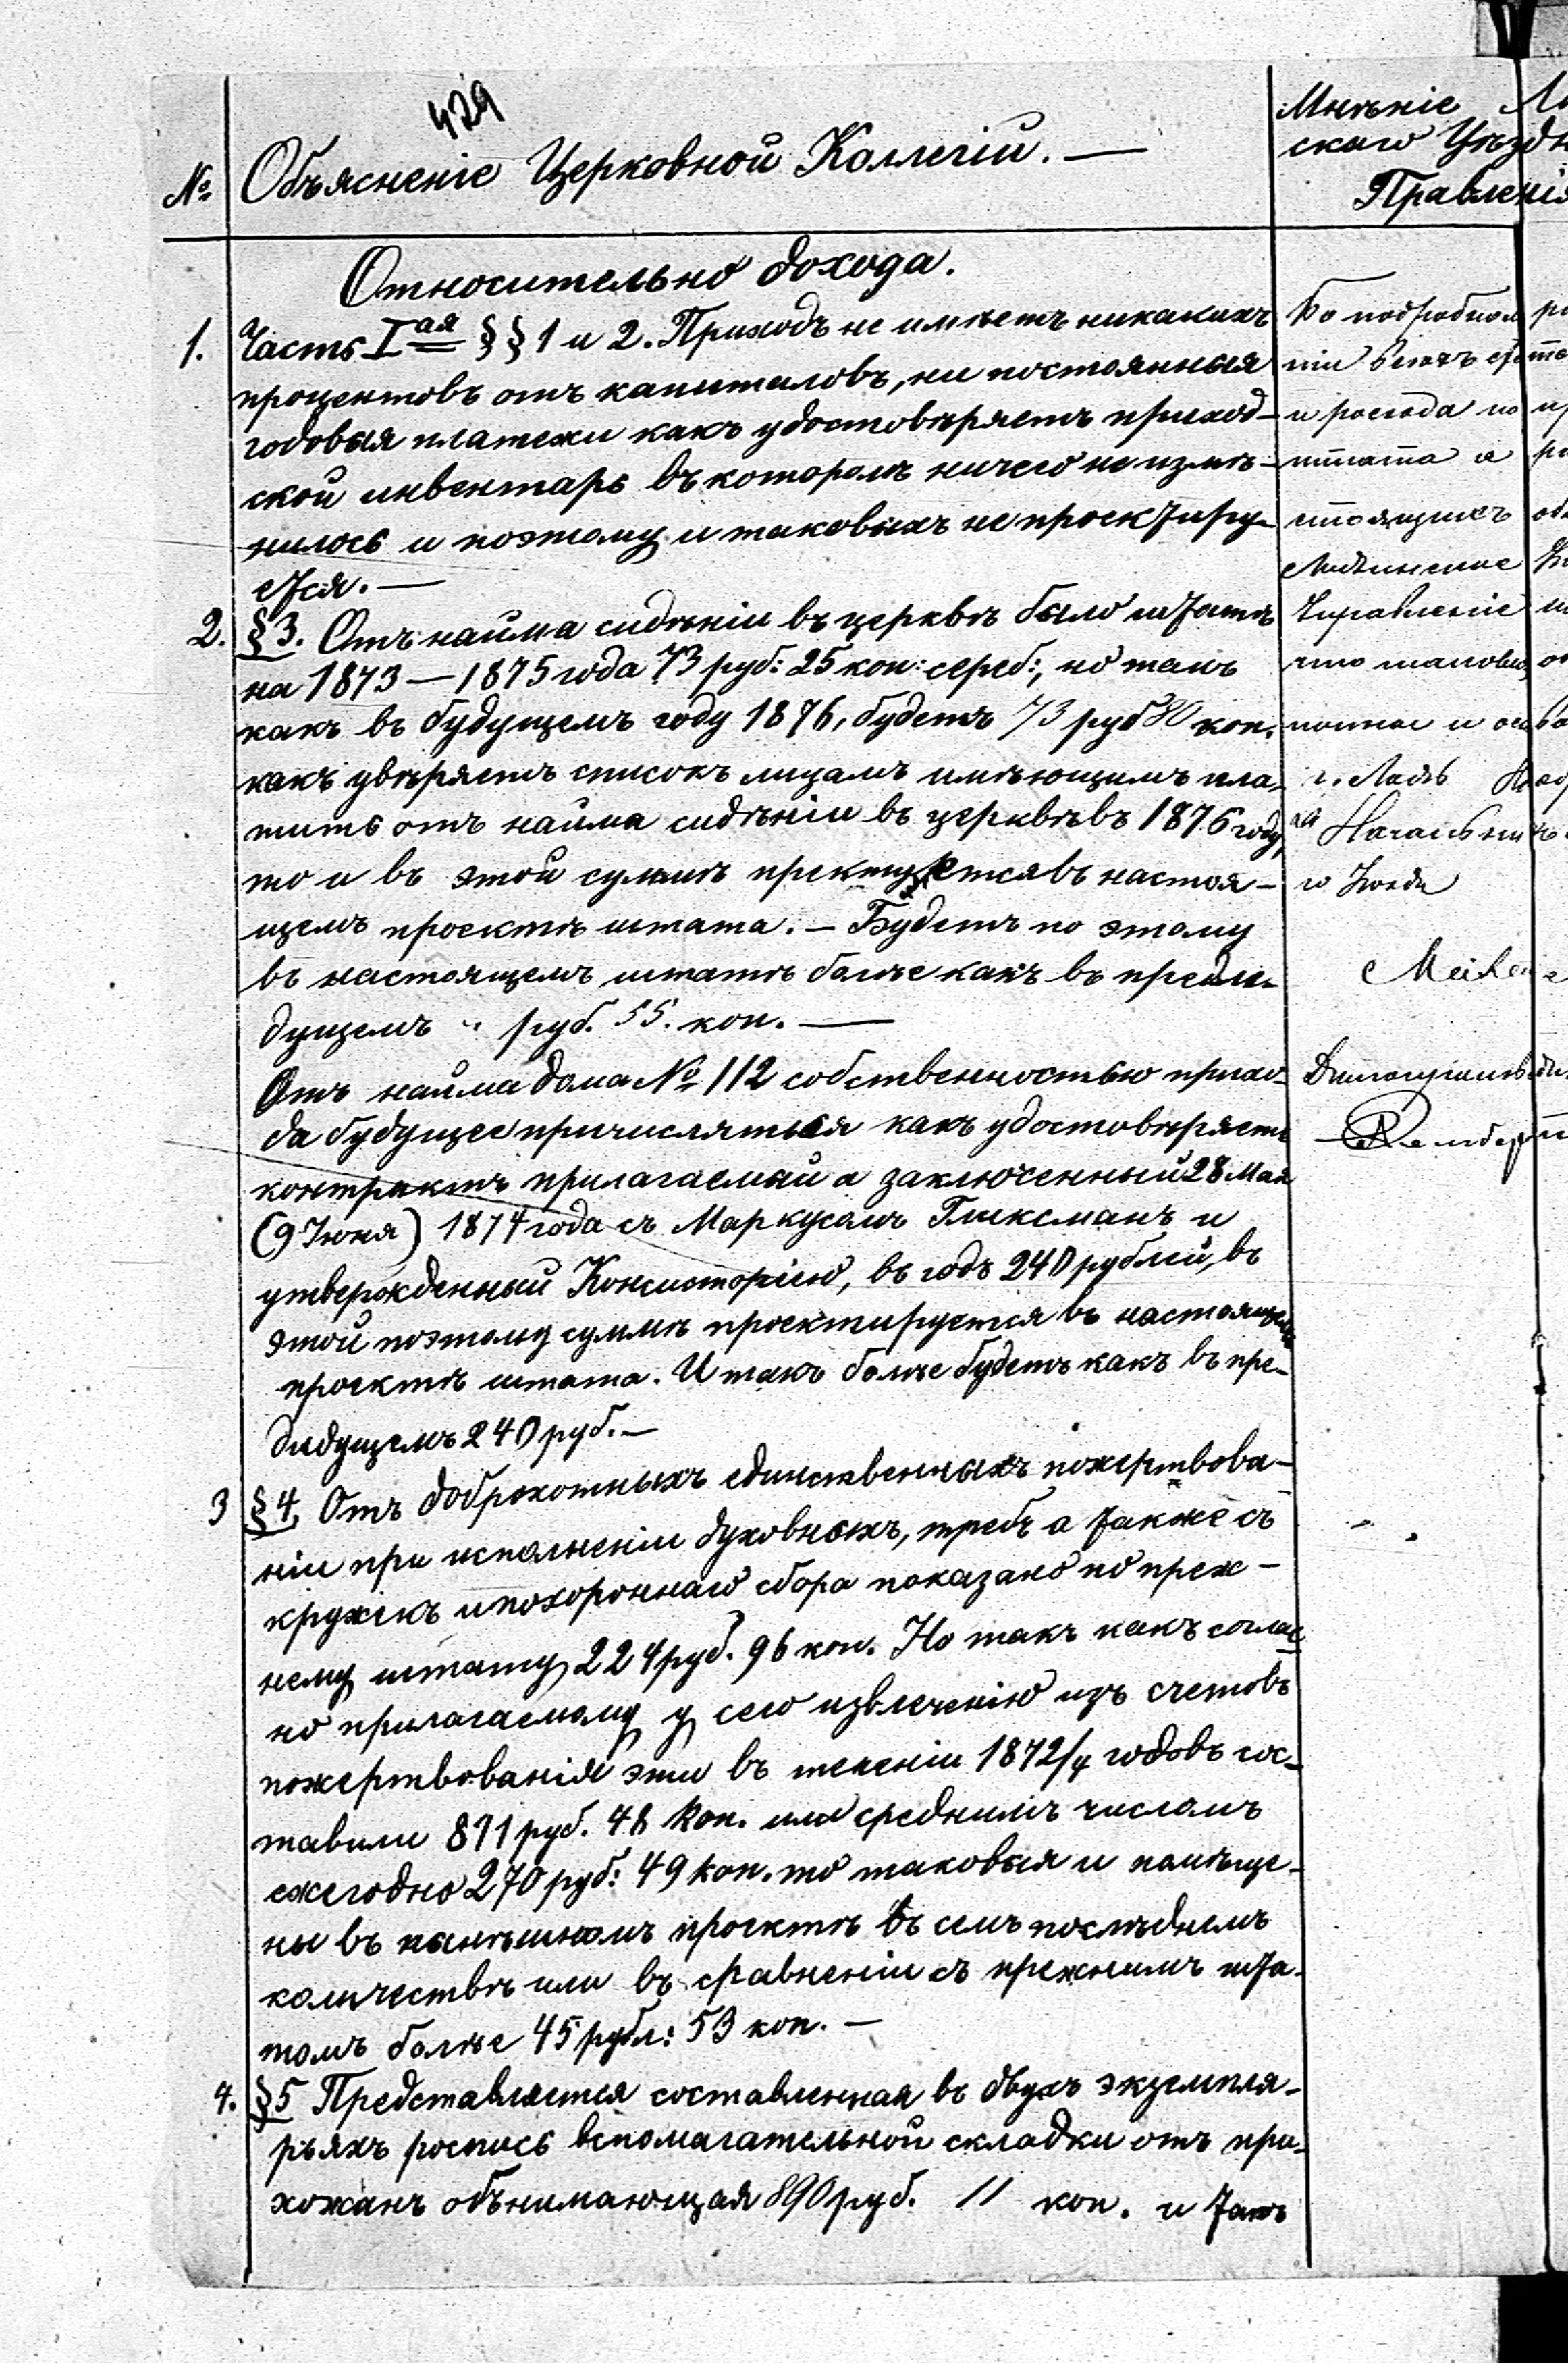 429
№
Объясненіе Церковной Коллегіи. —
Мнѣніе
скаго Уѣздн
Правленія
Относительно дохода.
1. Часть Iая §§ 1 и 2. Приходъ не имѣетъ никакихъ
процентовъ отъ капиталовъ, ни постоянныя
годовыя платежи какъ удостовѣряетъ приход-
ской инвентарь въ которомъ ничего не измѣ-
нилось и поэтому и таковыхъ не проектиру-
ется. —
2. § 3. Отъ найма сидѣніи въ церквѣ было штатѣ
на 1873 — 1875 года 73 руб: 25 коп: сереб:, но такъ
какъ въ будущемъ году 1876, будетъ 73 руб 80 коп.
какъ увѣряетъ списокъ лицамъ имѣющимъ пла-
тить отъ найма сидѣніи въ церквѣ въ 1876 году,
то и въ этой суммѣ пректуется въ настоя-
щемъ проектѣ штата. — Будетъ по этому
въ настоящемъ штатѣ болѣе какъ въ преди-
дущемъ " руб. 55. коп. —
Отъ найма дома № 112 собственностью прихо-
да будущее причисляться какъ удостовѣряетъ
контрактъ прилагаемый а заключенный 28 Мая
(9 Іюня) 1874 года съ Маркусомъ Гликсманъ и
утвержденный Консисторіею, въ годъ 240 рублей, въ
этой поэтому суммѣ проектируется въ настоящемъ
проектѣ штата. И такъ болѣе будетъ какъ въ пре-
дидущемъ 240 руб. —
3 § 4. Отъ доброхотныхъ единственныхъ пожертвова-
ніи при исполненіи духовныхъ, требъ а также съ
кружекъ и похороннаго сбора показано по преж-
нему штату 224 руб. 96 коп. Но такъ какъ соглас
но прилагаемому у сего извлеченію изъ счетовъ
пожертвованія эти въ теченіи 1872/4 годовъ сос-
тавили 811 руб. 48 коп. или среднимъ числомъ
ежегодно 270 руб: 49 коп. то таковыя и помѣще-
ны въ нынѣшномъ проектѣ въ семъ послѣднемъ
количествѣ или въ сравненіи съ прежнимъ шта-
томъ болѣе 45 рубл: 53 коп. —
4. § 5 Представляется составленная въ двухъ экземпля-
рьяхъ роспись вспомагательной складки отъ при-
хожанъ обнимающая 890 руб. 11 коп. и такъ
По подробном
ніи
и расхода по
штата а
стоящихъ
Управленіе
что таковы
полное и
г. Ладзь
Начальник